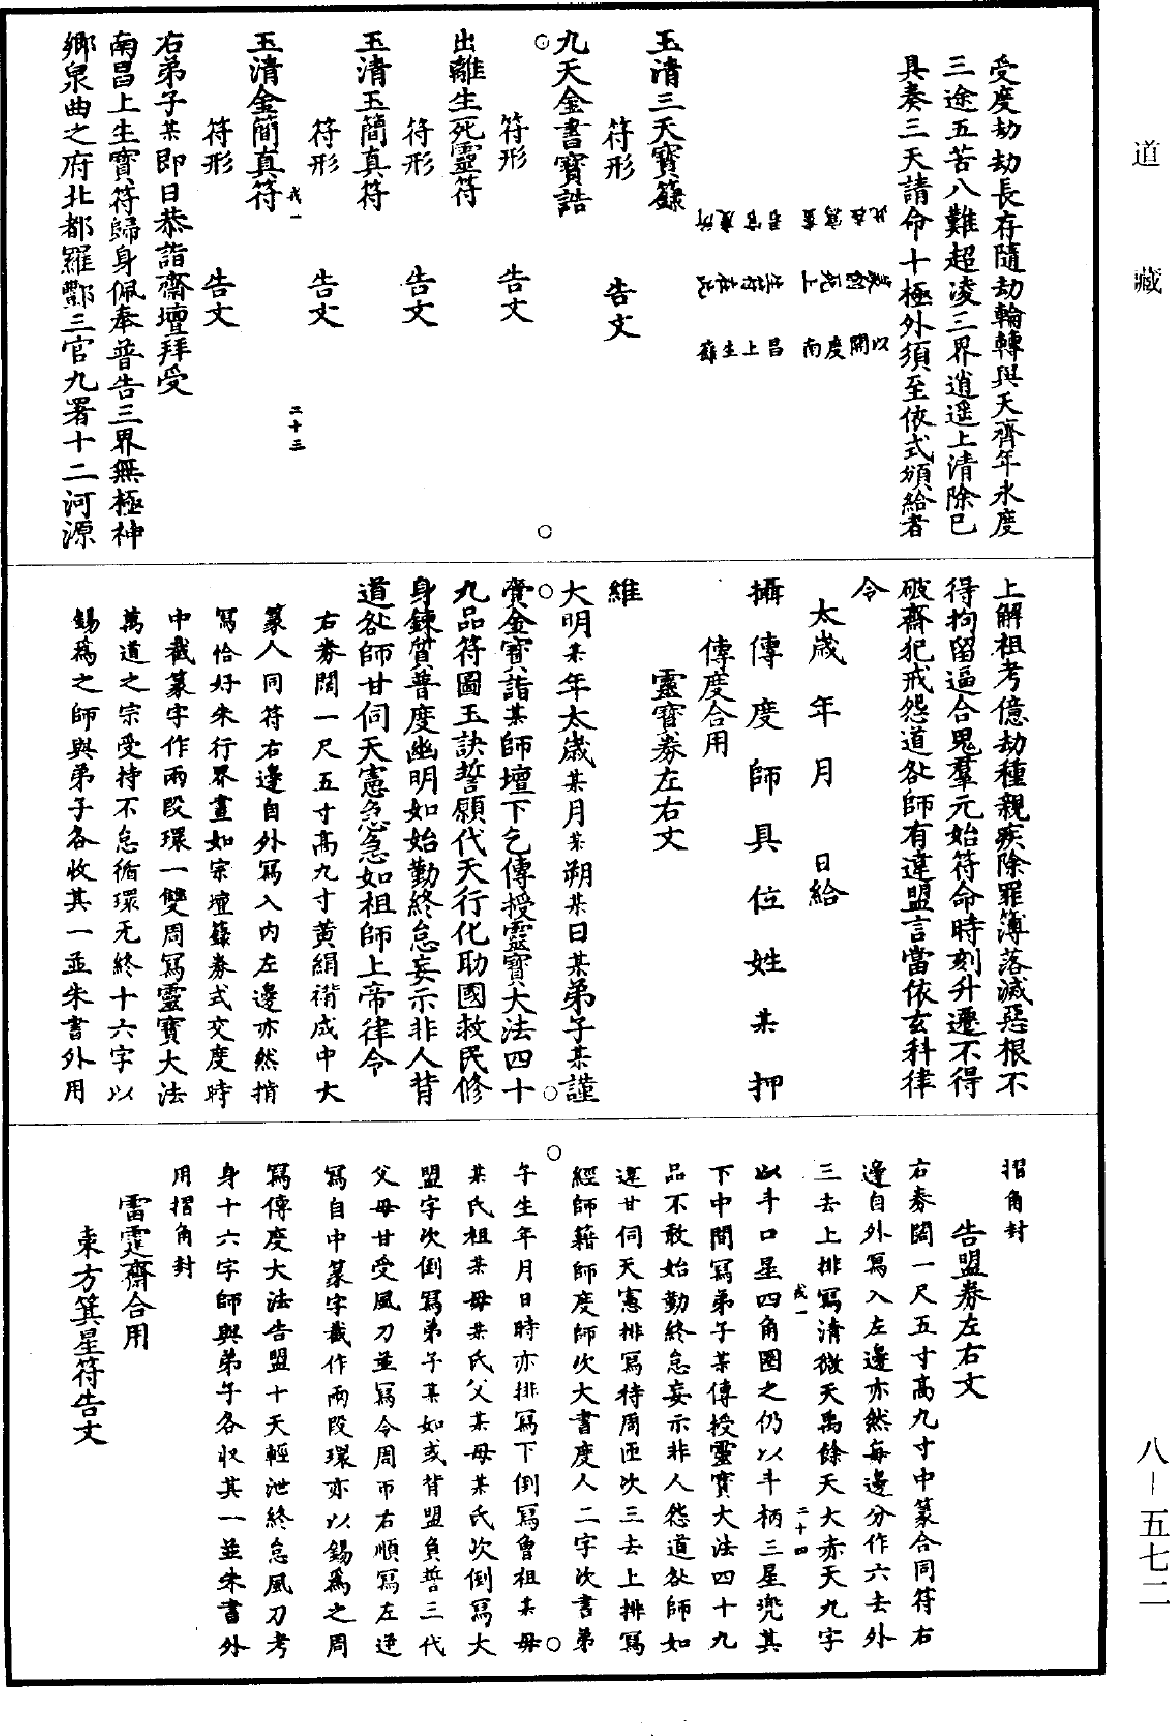 道藏
受度劫劫長存隨劫輪轉與天齊年永度
三途五苦八難超凌三界逍遥上清除已
具奏三天請命十極外須至依式頒給者
玉清三天寶籙
符形　告文
九天金書寶誥
符形　告文
出離生死靈符
符形　告文
玉清玉簡真符
符形　告文
玉清金簡真符
戎一　二十三
符形　告文
右弟子某即日恭詣齋壇拜受
南昌上生寶符歸身佩奉普告三界無極神
鄉泉曲之府北都羅酆三官九署十二河源
上解祖考億劫種親疾除罪簿落滅惡根不
得拘留逼合鬼羣元始符命時刻升遷不得
破齋犯戒怨道咎師有違盟言當依玄科律
令
太歲　年　月　日給
攝傳度師具位姓某押
傳度合用
靈寶券左右文
維
大明某年太歲某月某朔某日某弟子某謹
賫金寶詣某師壇下乞傳授靈寶大法四十
九品符圖玉訣誓願代天行化助國救民修
身鍊質普度幽明如始勤終怠妄示非人背
道咎師甘伺天憲急急如祖師上帝律令
右券闊一尺五寸高九寸黄絹褙成中大
篆人同符右邊自外寫入内左邊亦然揹
寫恰好朱行界畫如宗壇籙券式交度時
中截篆字作兩段環一雙周寫靈寶大法
萬道之宗受持不怠循環无終十六字以
錫爲之師與弟子各收其一並朱書外用
摺角封
告盟券左右文
右券闊一尺五寸高九寸中篆合同符右
邊自外寫入左邊亦然每邊分作六去外
三去上排寫清微天禹餘天大赤天九字
戎一　二十四
以斗口星四角圈之仍以斗柄三星兜其
下中間寫弟子某傳授靈寶大法四十九
品不敢始勤終怠妄示非人怨道咎師如
違甘伺天憲排寫待周匝次三去上排寫
經師籍師度師次大書度人二字次書弟
子生年月日時亦排寫下倒寫曾祖某母
某氏祖某母某氏父某母某氏次倒寫大
盟字次倒寫弟子某如或背盟負誓三代
父母甘受風刀並寫令周帀右順寫左逆
寫自中篆字截作兩段環亦以錫爲之周
寫傳度大法告盟十天輕泄終怠風刀考
身十六字師與弟子各收其一並朱書外
用摺角封
雷霆齋合用
東方箕星符告文
八－五七二